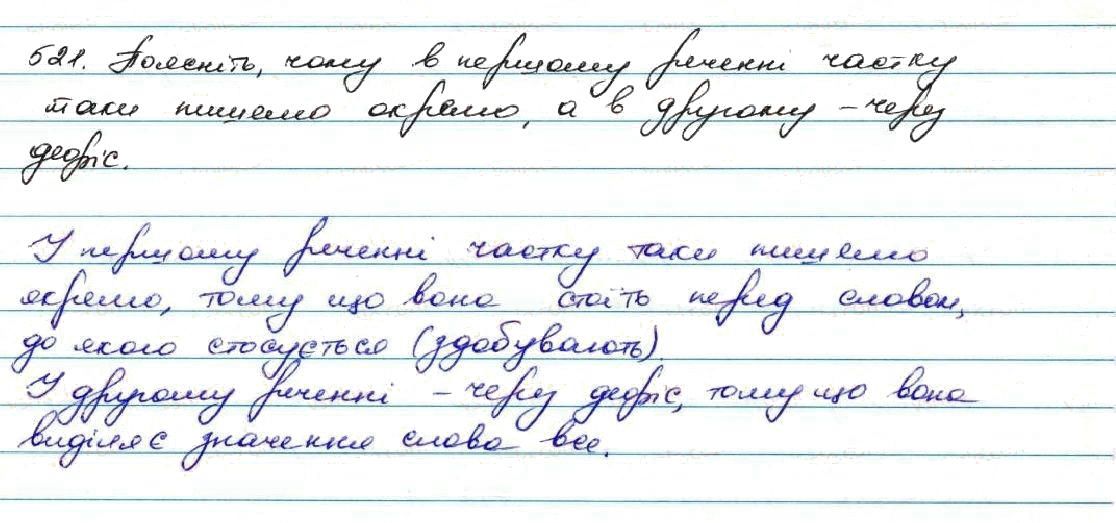 521. Поясніть, чому в першому реченні частку
таки пишемо окремо, а в другому – через
дефіс.
У першому реченні частку таки пишемо
окремо, тому що вона стоїть перед словом,
до якого стосується (здобувають).
У другому реченні – через дефіс, тому що вона
виділяє значення слова все.